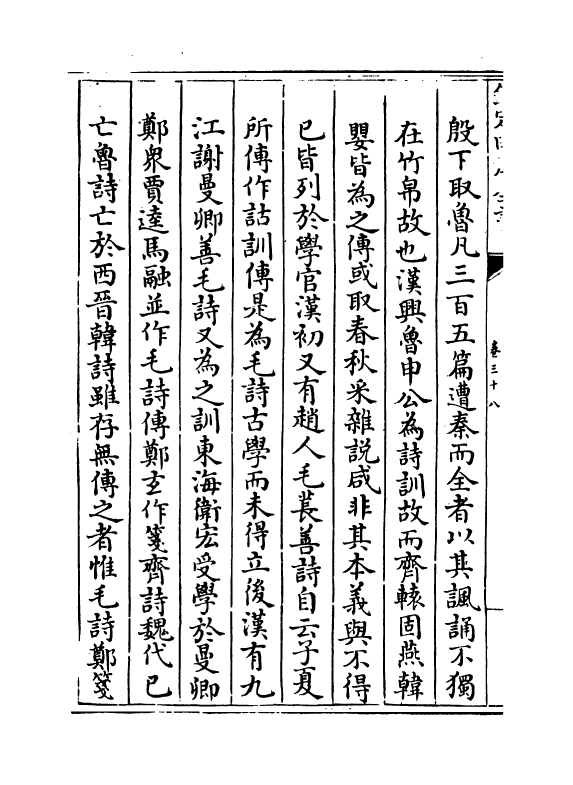 殷下取魯凡三百五篇遭秦而全者以其諷誦不獨
在竹帛故也漢興魯申公為詩訓故而齊轅固燕韓
嬰皆為之傳或取春秋采雜説咸非其本義與不得
已皆列於學官漢初又有趙人毛萇善詩自云子夏
所傳作詁訓傳是為毛詩古學而未得立後漢有九
江謝曼卿善毛詩又為之訓東海衛宏受學於曼卿
鄭衆賈逵馬融並作毛詩傳鄭玄作箋齊詩魏代已
亡魯詩亡於西晉韓詩雖存無傳之者惟毛詩鄭箋
卷三十八